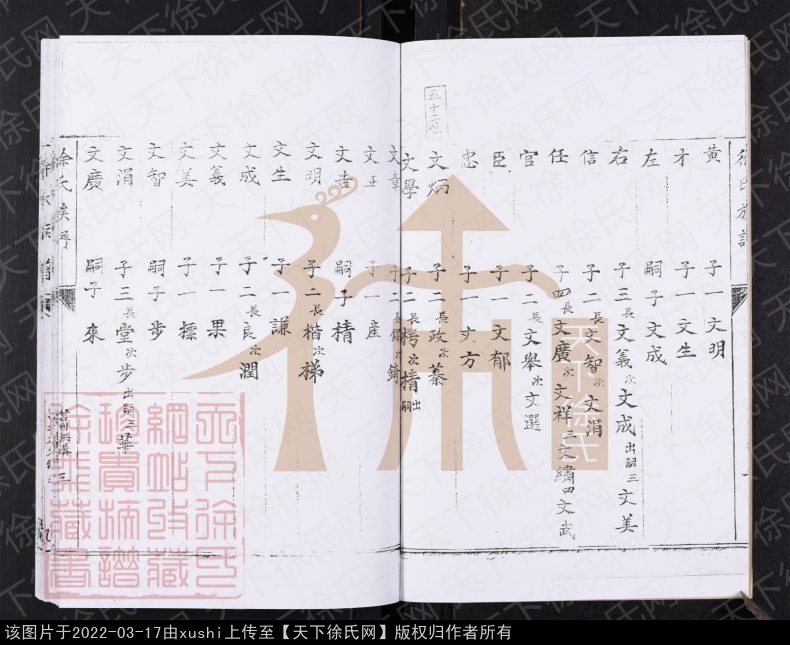 徐氏族譜
五十二世
黃 子一 文明
才 子一 文生
左 嗣子 文成
右 子三 長文義 次文成 出嗣 三文美
信 子二 長文智 次文涓
任 子四 長文廣 次文祥 三文繡 四文武
官 子二 長文舉 次文選
臣 子一 文郁
忠 子一 文方
文炳 子二 長政 次蓁
文學 子二 長樗 次精 出嗣
文章 子二
文正 子一 産
文吉 嗣子 精
文明 子二 長楷 次梯
文生 子一 謙
文成 子二 長良 次潤
文義 子一 果
文美 子一 標
文智 嗣子 步
文涓 子三 長堂 次步 出嗣 三華
文廣 嗣子 來
徐氏族譜
天下徐氏
天下徐氏
網站收藏
珍貴族譜
徐飛藏書
天下徐氏网
该图片于2022-03-17由xushi上传至【天下徐氏网】版权归作者所有